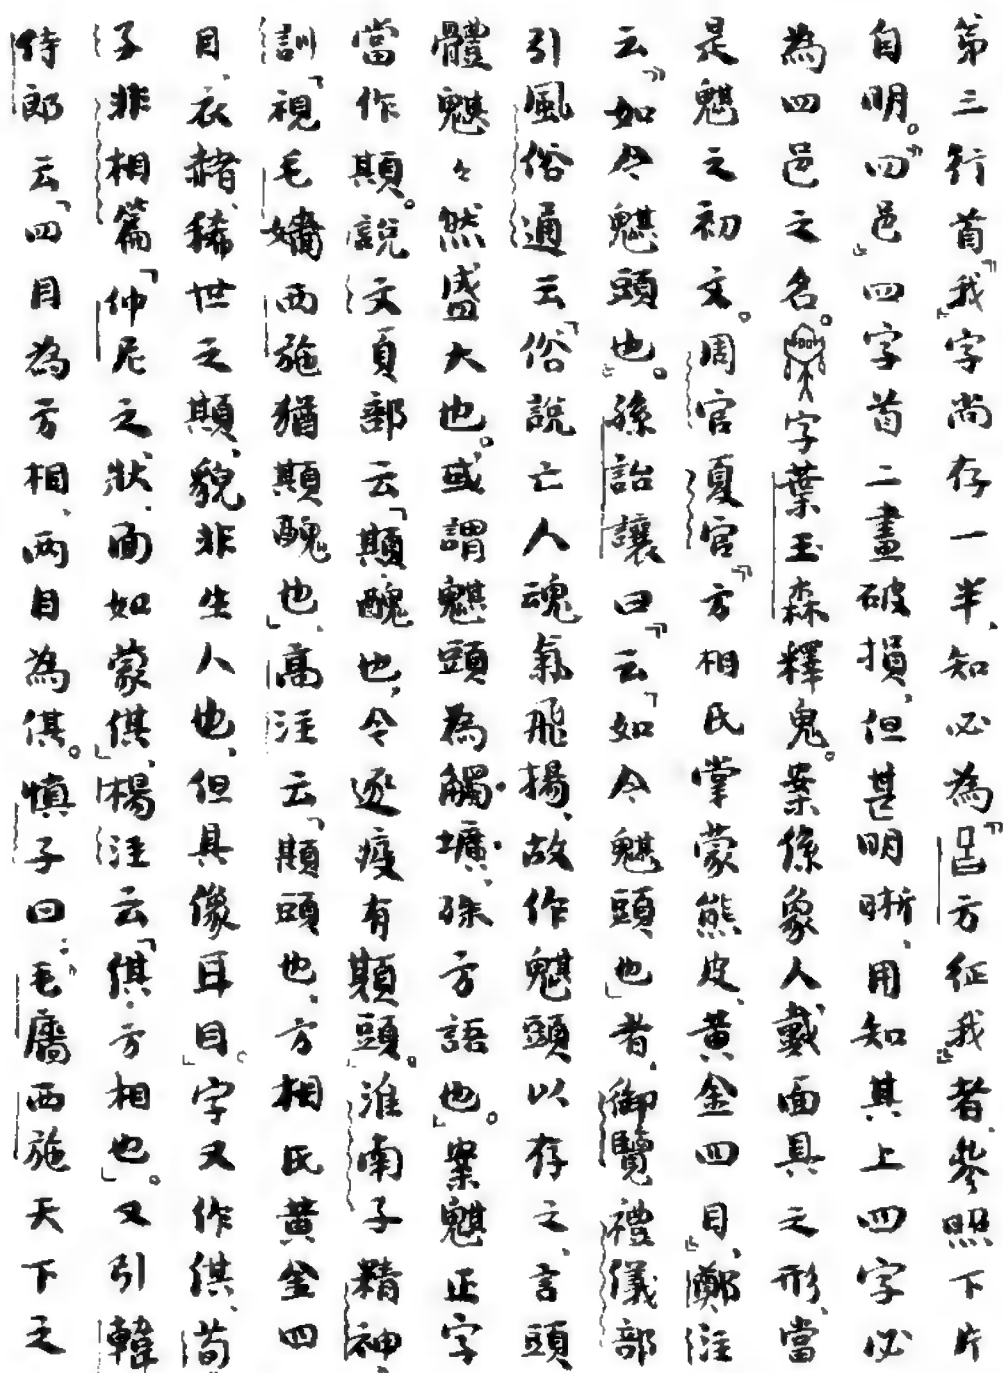 第三行首『我』字尚存一半、知必為『呂方征我』者、參照下片
自明。『四邑』四字首二畫破損、但甚明晰、用知其上四字必
為四邑之名。字葉玉森釋鬼。案係象人戴面具之形、當
是魌之初文。周官夏官『方相氏掌蒙熊皮、黃金四目』、鄭注
云『如今魌頭也』。孫詒讓曰『云「如今魌頭也」者、御覽禮儀部
引風俗通云「俗說亡人魂氣飛揚、故作魌頭以存之、言頭
體魌々然盛大也。或謂魌頭為觸壙、殊方語也」。案魌正字
當作䫏。說文頁部云「䫏、醜也、今逐疫有䫏頭」。淮南子精神
訓「視毛嬙西施猶䫏醜也」、高注云「䫏頭也、方相氏黃金四
目、衣赭、稀世之䫏、貌非生人也、但具像耳目」。字又作倛、荀
子非相篇「仲尼之狀、面如蒙倛」、楊注云「倛、方相也」。又引韓
侍郎云「四目為方相、兩目為倛。慎子曰：毛廧西施天下之